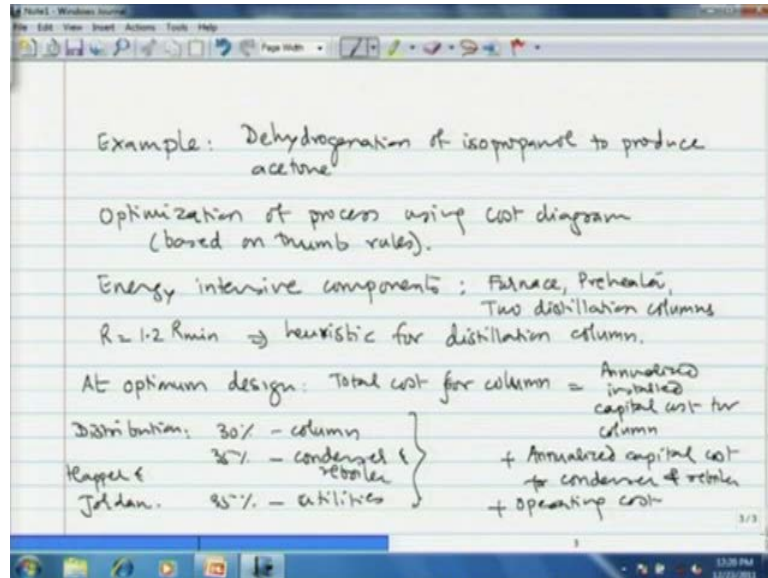 Note1 - Windows Journal
File Edit View Insert Actions Tools Help
Page Width
Example: Dehydrogenation of isopropanol to produce
acetone
Optimization of process using cost diagram
(based on thumb rules).
Energy intensive components : Furnace, Preheater,
Two distillation columns
R = 1.2 Rmin ⇒ heuristic for distillation column.
At optimum design: Total cost for column = Annualized
installed
capital cost for
column
Distribution: 30% - column
35% - condenser &
reboiler
+ Annualized capital cost
for condenser & reboiler
Happel &
Jordan. 35% - utilities
+ operating cost
3/3
3
12:20 PM
12/23/2011